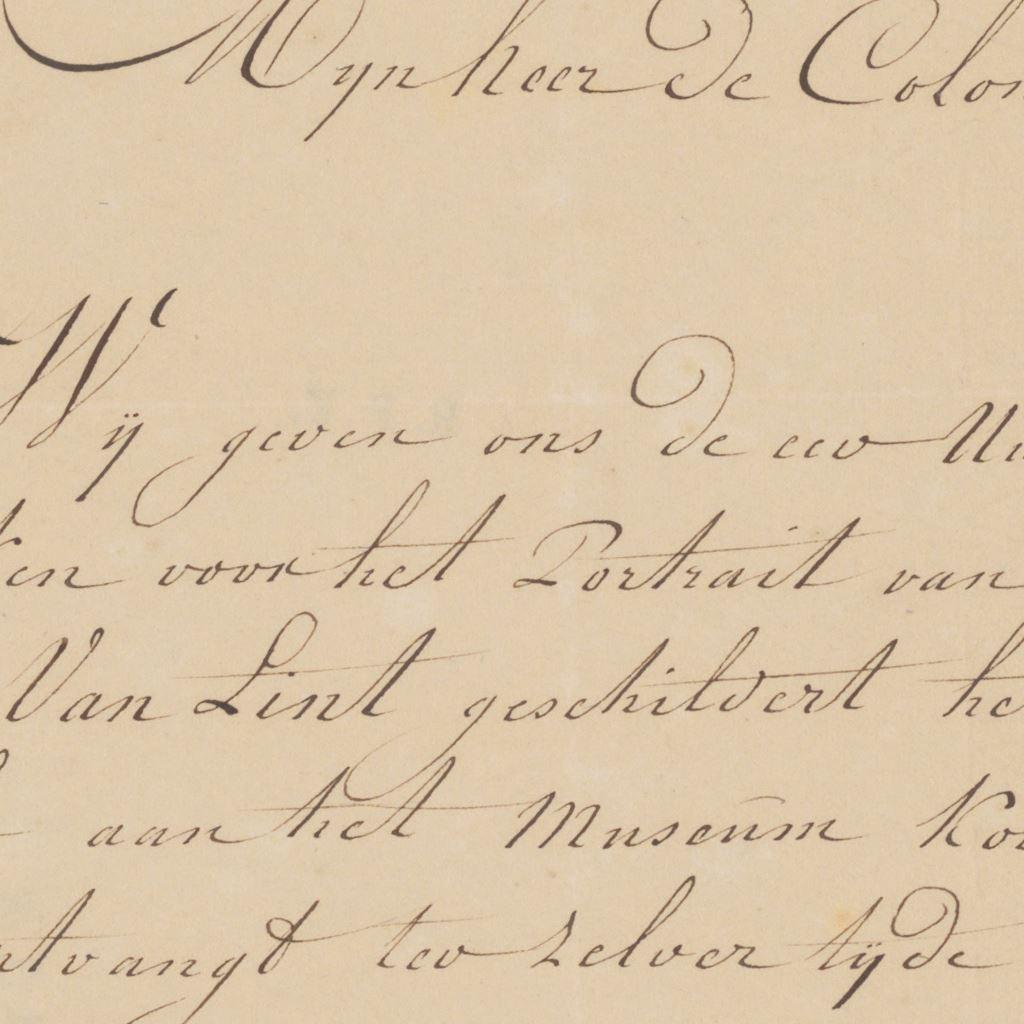 Mynheer de Colon
Wij geven ons de eer Uw
ken voor het Portrait van
Van Lint geschildert he
aan het Museum Kon
ntvangt ter zelver tijde